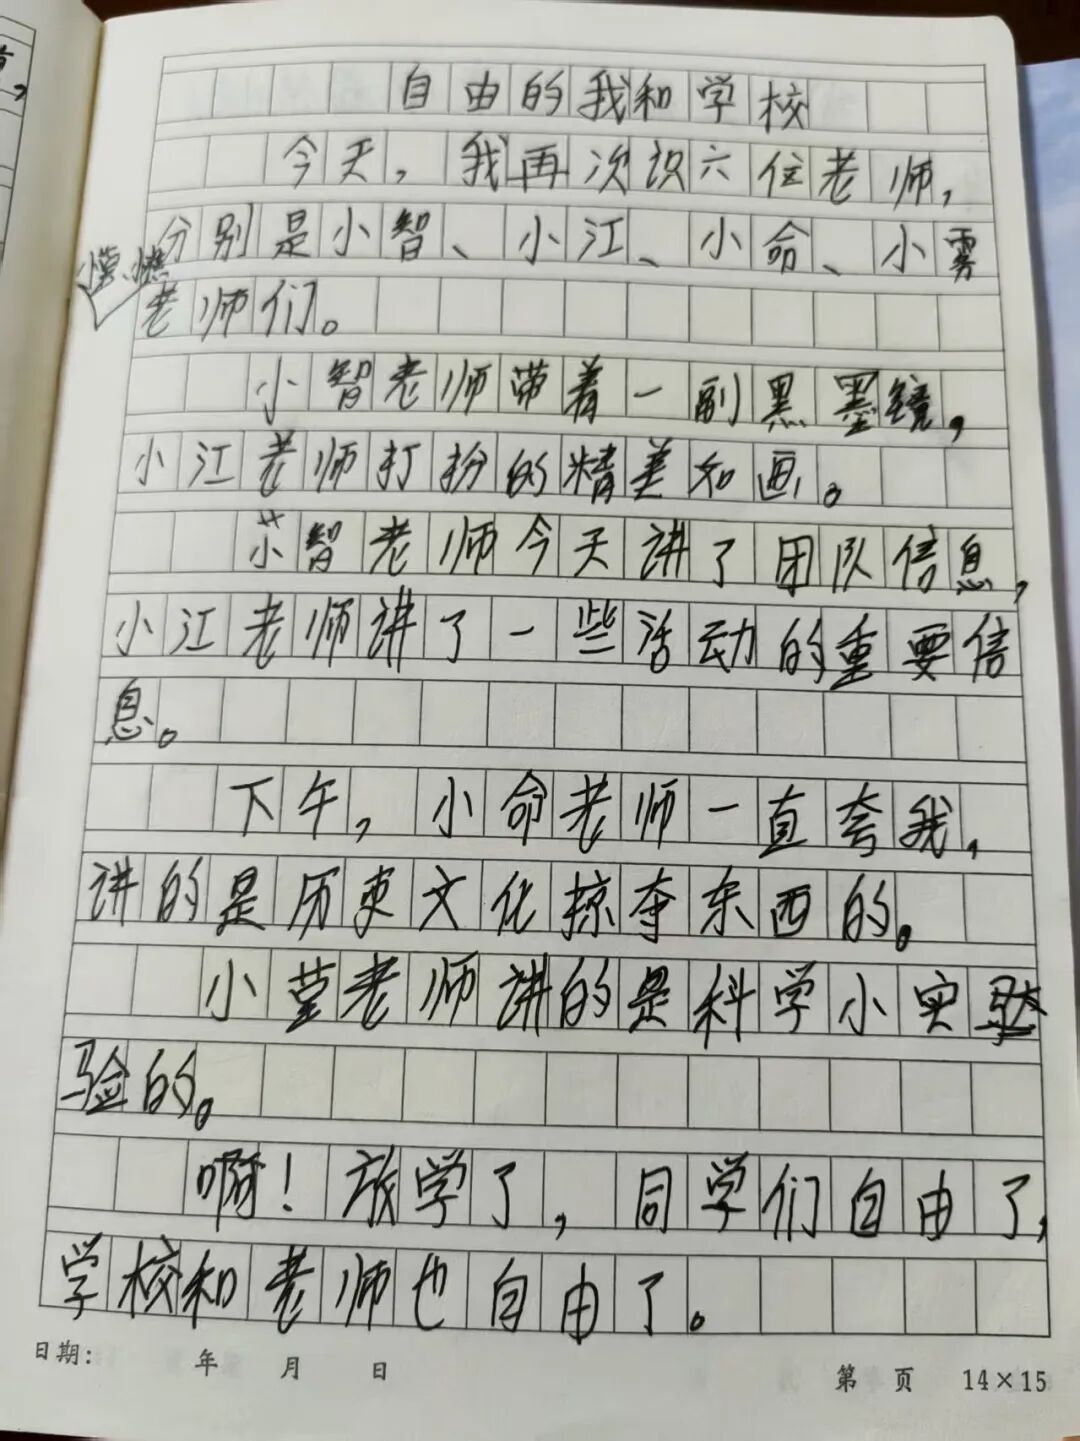 自由的我和学校
今天，我再次识六位老师，
分别是小智、小江、小命、小雾
老师们。
小智老师带着一副黑墨镜，
小江老师打扮的精美如画。
小智老师今天讲了团队信息，
小江老师讲了一些活动的重要信
息。
下午，小命老师一直夸我，
讲的是历史文化掠夺东西的。
小莹老师讲的是科学小实
验的。
啊！放学了，同学们自由了，
学校和老师也自由了。
日期： 年 月 日
第 页 14×15